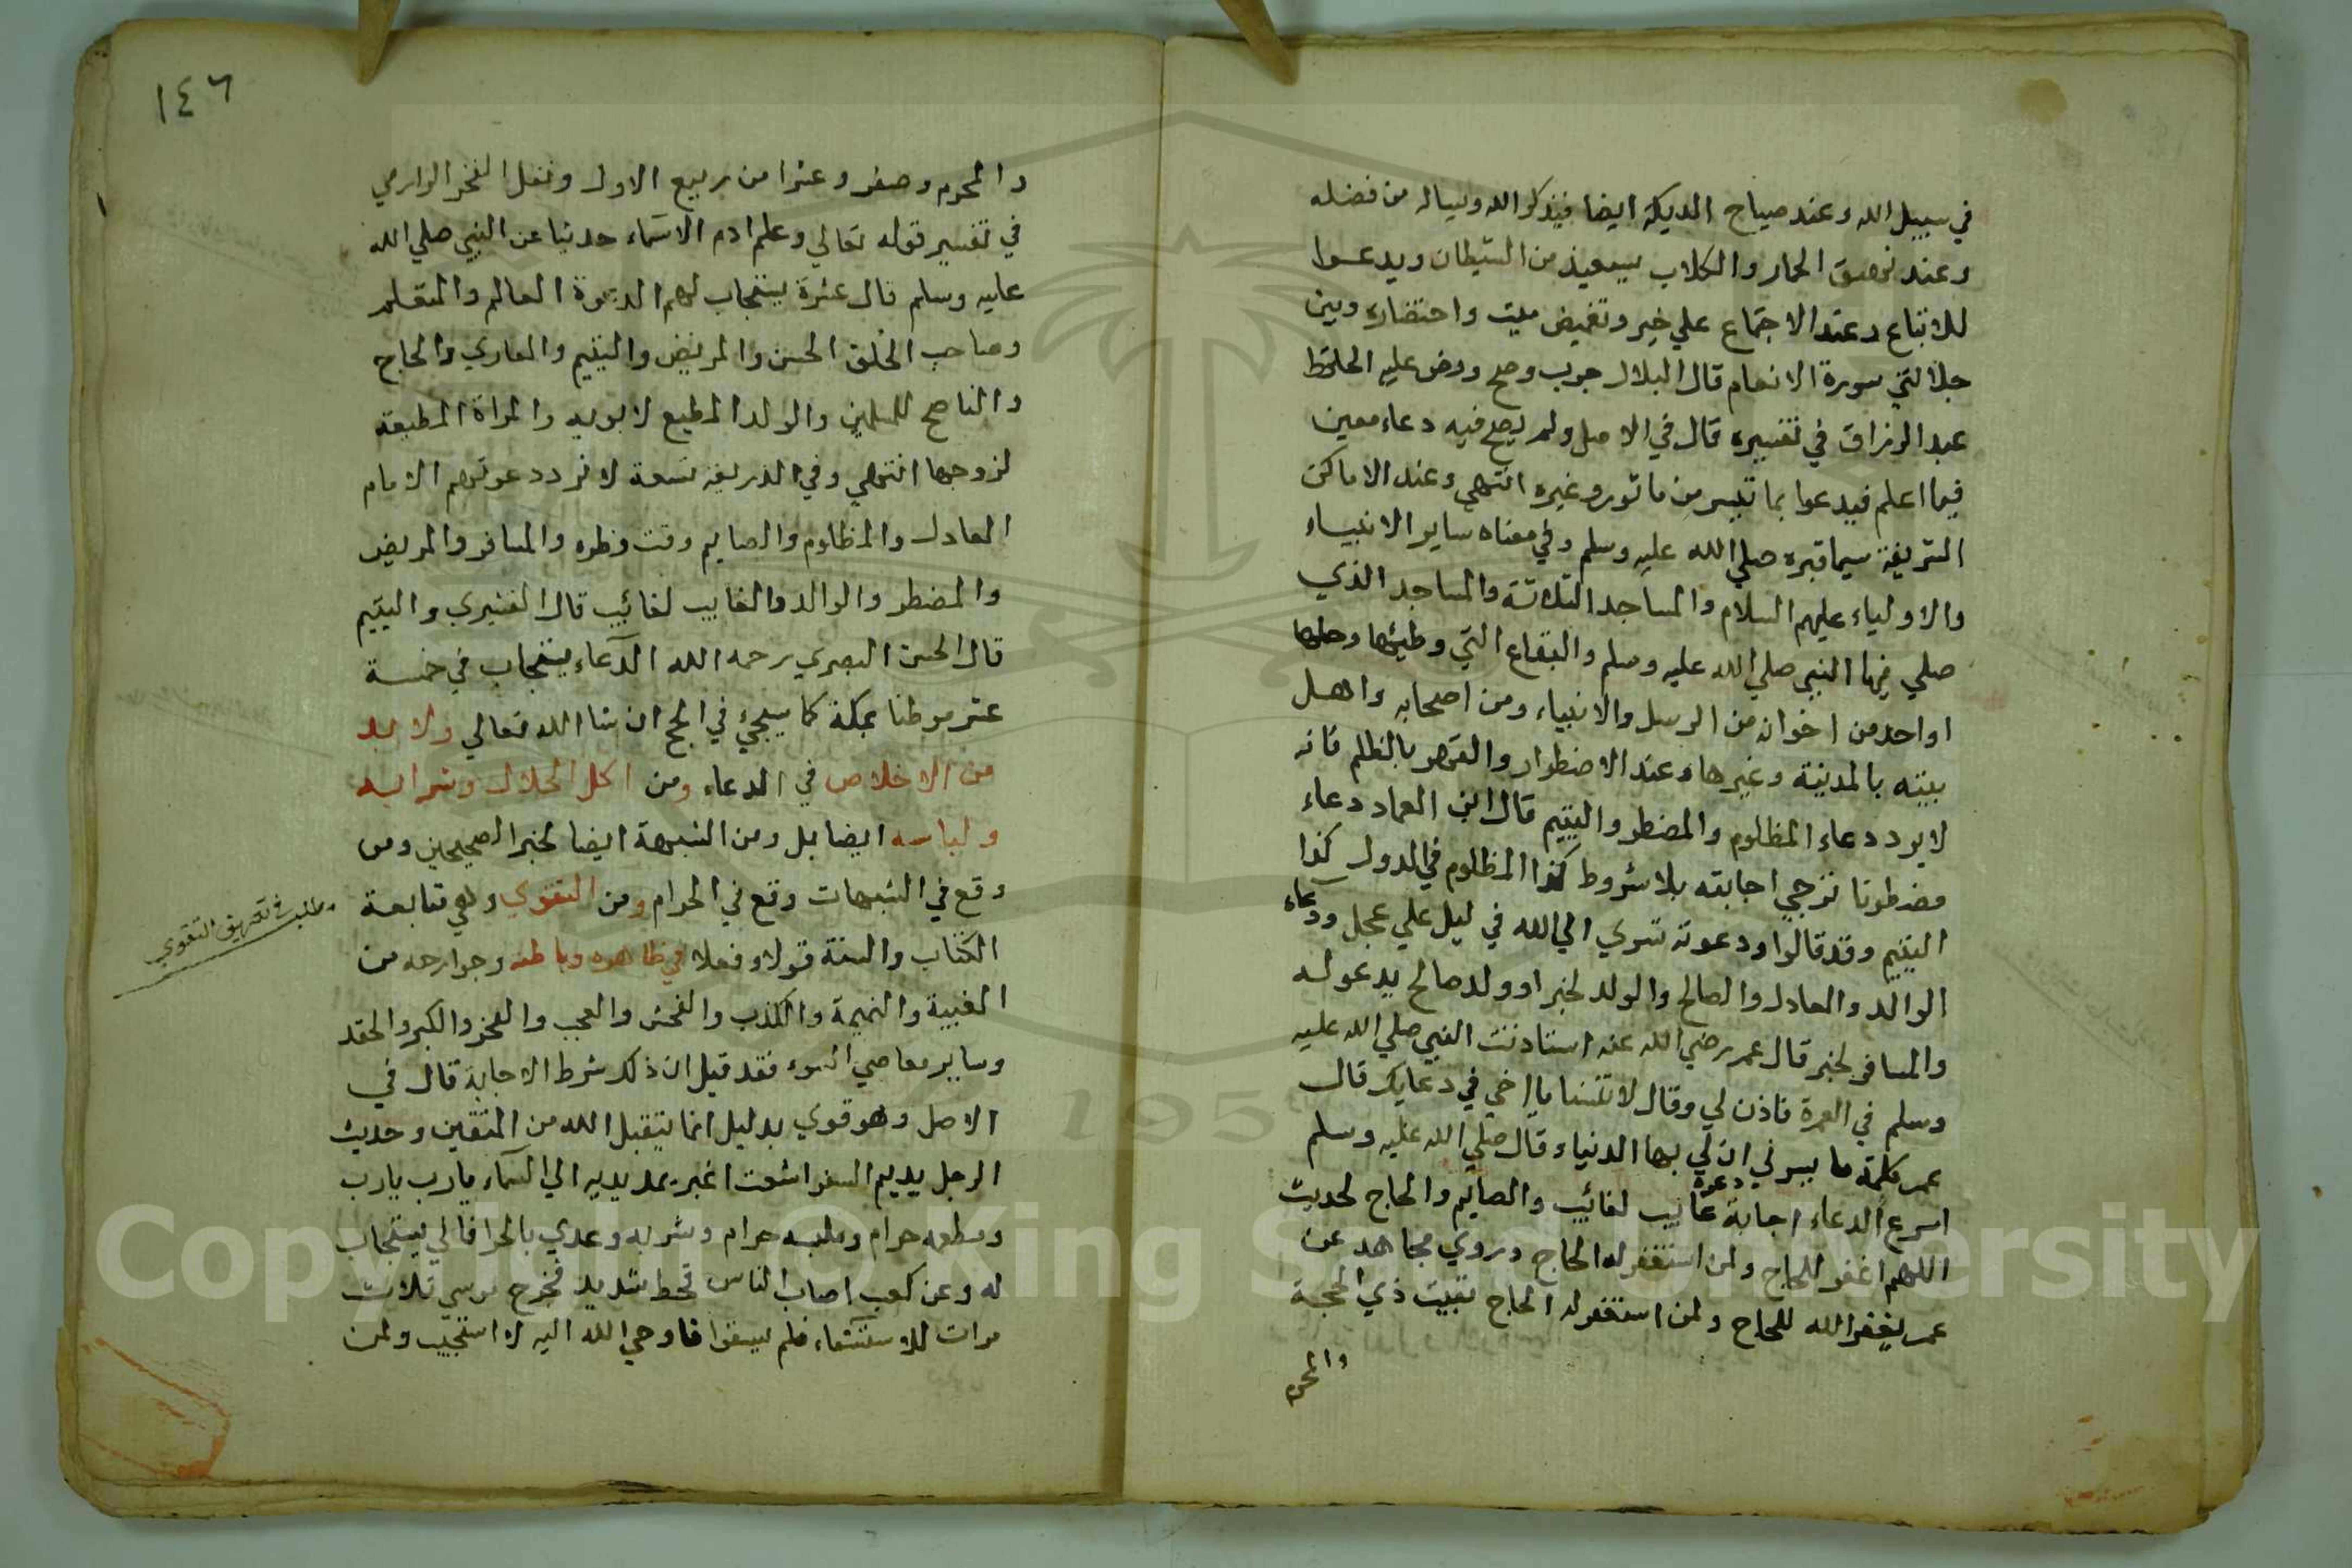 في سبيل الله وعند صياح الديكة ايضا فيذكر الله ويساله من فضله
وعند نهيق الحمار والكلاب يستعيذ من الشيطان ويدعوا
للاتباع وعند الاجتماع علي خير وتغميض ميت واحتضاره وبين
جلالتي سورة الانعام قال البلال جرب وصح ونص عليه الحافظ
عبد الرزاق في تفسيره قال في الاصل ولم يصح فيه دعاء معين
فيما اعلم فيدعوا بما تيسر من ماثور وغيره انتهي وعند الاماكن
الشريفة سيما قبره صلي الله عليه وسلم وفي معناه ساير الانبياء
والاولياء عليهم السلام والمساجد الثلاثة والمساجد الذي
صلي فيها النبي صلي الله عليه وسلم والبقاع التي وطيئها وحلها
او احد من اخوانه من الرسل والانبياء ومن اصحابه واهل
بيته بالمدينة وغيرها وعند الاضطرار والقهر بالظلم فانه
لا يرد دعاء المظلوم والمضطر واليتيم قال ابن العماد دعاء
مضطرنا ترجي اجابته بلا شروط كذا المظلوم في الدول كذا
اليتيم وقد قالوا ودعوته تسري الي الله في ليل علي عجل ودعاء
الوالد والعادل والصالح والولد لخبر او ولد صالح يدعو له
والمسافر لخبر قال عمر رضي الله عنه استاذنت النبي صلي الله عليه
وسلم في العمرة فاذن لي وقال لا تنسنا يا اخي في دعايك قال
عمر كلمة ما يسرني ان لي بها الدنيا وقال صلي الله عليه وسلم
اسرع الدعاء اجابة دعوة غايب لغائب والصايم والحاج لحديث
اللهم اغفر للحاج ولمن استغفر له الحاج وروي مجاهد عن
عمر يغفر الله للحاج ولمن استغفر له الحاج بقيت ذي الحجة
والمحرم
١٤٦
والمحرم وصفر وعشرا من ربيع الاول ونقل الفخر الرازي
في تفسير قوله تعالي وعلم ادم الاسماء حديثا عن النبي صلي الله
عليه وسلم قال عشرة يستجاب لهم الدعوة العالم والمتعلم
وصاحب الخلق الحسن والمريض واليتيم والغازي والحاج
والناصح للمسلمين والولد المطيع لابويه والمراة المطيعة
لزوجها انتهي وفي الذريعة تسعة لا ترد دعوتهم الامام
العادل والمظلوم والصايم وقت فطره والمسافر والمريض
والمضطر والوالد والغايب لغائب قال القشيري واليتيم
قال الحسن البصري رحمه الله الدعاء يستجاب في خمسة
عشر موطنا بمكة كما سيجيء في الحج ان شا الله تعالي ولا بد
من الاخلاص في الدعاء ومن اكل الحلال وشرابه
ولباسه ايضا بل ومن الشبهة ايضا لخبر الصحيحين ومن
وقع في الشبهات وقع في الحرام ومن التقوي وهي متابعة
الكتاب والسنة قولا وفعلا في ظاهره وباطنه وجوارحه من
مطلب في تعريف التقوي
الغيبة والنميمة والكذب والفحش والعجب والفخر والكبر والحقد
وساير معاصي السوء فقد قيل ان ذلك شرط الاجابة قال في
الاصل وهو قوي بدليل انما يتقبل الله من المتقين وحديث
الرجل يديم السفر اشعث اغبر يمد يديه الي السماء يارب يارب
ومطعمه حرام وملبسه حرام ومشربه وغدي بالحرام فاني يستجاب
له وعن كعب اصاب الناس قحط شديد فخرج موسي ثلاث
مرات للاستسقاء فلم يسقوا فاوحي الله اليه لا استجيب ولمن
Copyright © King Saud University
1957